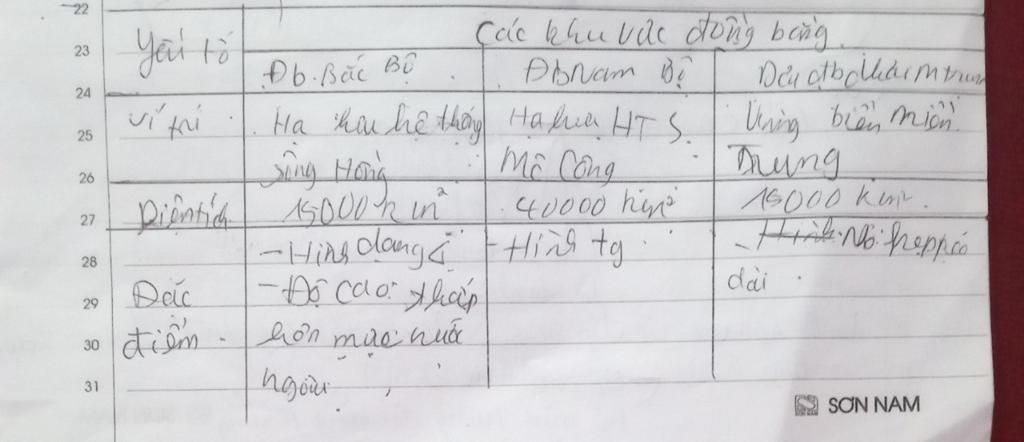 22
23
24
25
26
27
28
29
30
31
Yếu tố
Các khu vức đồng bằng.
Đb. Bắc Bộ
Đb Nam Bộ
Ví trí
Hạ hệ thống
sông Hồng
Hạ HTS.
Mê Công
Vùng biển miền
Trung
Diện tích
15000 km²
40000 km²
15000 km²
Đăc
điểm
- Hình dạng
- Độ cao: thấp
hơn mực nước
ngoài
- Hình tg
- Nỏ hẹp, có
dài
SƠN NAM